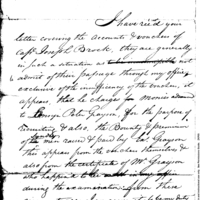 I have rec'd your
letter covering the accounts & vouchers of
Capt. Joseph Brock, they are generally
in such a situation as
to admit of their passage through my office,
exclusive of the insufficiency of the vouchers, it
appears, that he charges for monies advanced
to George Peter Grayson, for the purpose of
recruiting & also, the Bounty & premium
of the men raised & paid by Lieut Grayson
this appears from the vouchers themselves &
also from the certificate of Mr Grayson
who happen'd to in my office
during the examination. From these